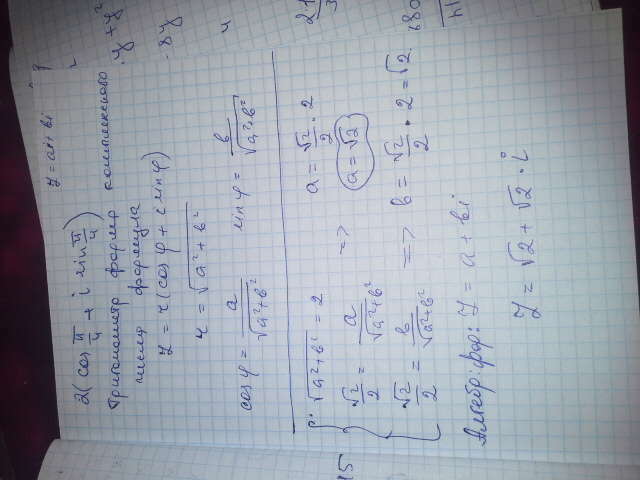 z = ai + bi
2(cos π/4 + i sin π/4)
Тригонометр форма комплексного
числа формула
z = r(cos φ + i sin φ)
r = √(a² + b²)
cos φ = a/√(a²+b²) sin φ = b/√(a²+b²)
√(a²+b²) = 2 a = √2/2 · 2
√2/2 = a/√(a²+b²) => a = √2
√2/2 = b/√(a²+b²) => b = √2/2 · 2 = √2
Алгебр. фор: z = a + bi
z = √2 + √2 · i
y + y²
- 8y